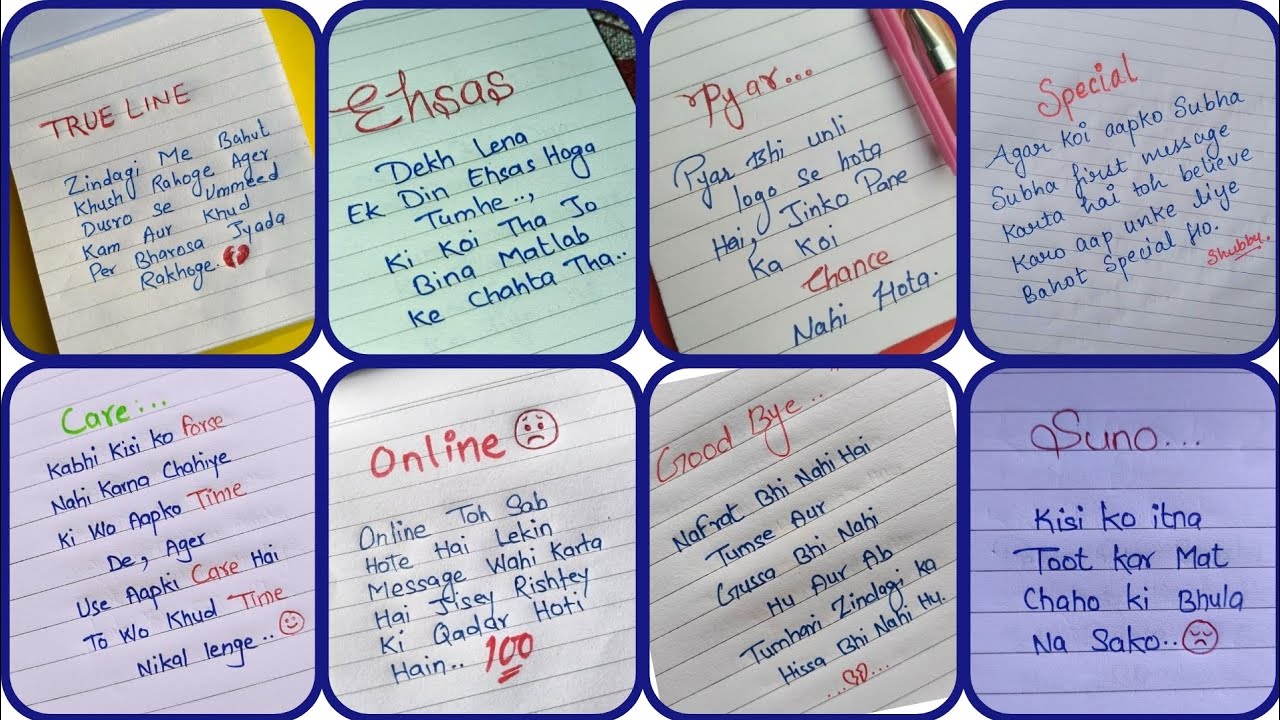 TRUE LINE
Zindagi Me Bahut
Khush Rahoge Ager
Dusro se Ummeed
Kam Aur Khud
Per Bharosa Jyada
Rakhoge..
Ehsas
Dekh Lena
Ek Din Ehsas Hoga
Tumhe..,
Ki Koi Tha Jo
Bina Matlab
Ke Chahta Tha..
Pyar...
Pyar Bhi unhi
logo se hota
Hai, Jinko Pane
Ka Koi
Chance
Nahi Hota.
Special
Agar Koi aapko Subha
Subha first message
Karta hai toh believe
Karo aap unke liye
Bahot Special Ho.
Shubby.
Care...
Kabhi Kisi ko forse
Nahi Karna Chahiye
Ki Wo Aapko Time
De, Ager
Use Aapki Care Hai
To Wo Khud Time
Nikal lenge..
Online
Online Toh Sab
Hote Hai Lekin
Message Wahi Karta
Hai Jisey Rishtey
Ki Qaddr Hoti
Hain.. 100
Good Bye..
Nafrat Bhi Nahi Hai
Tumse Aur
Gussa Bhi Nahi
Hu Aur Ab
Tumhari Zindagi ka
Hissa Bhi Nahi Hu.
Suno...
Kisi ko itna
Toot Kar Mat
Chaho ki Bhula
Na Sako..